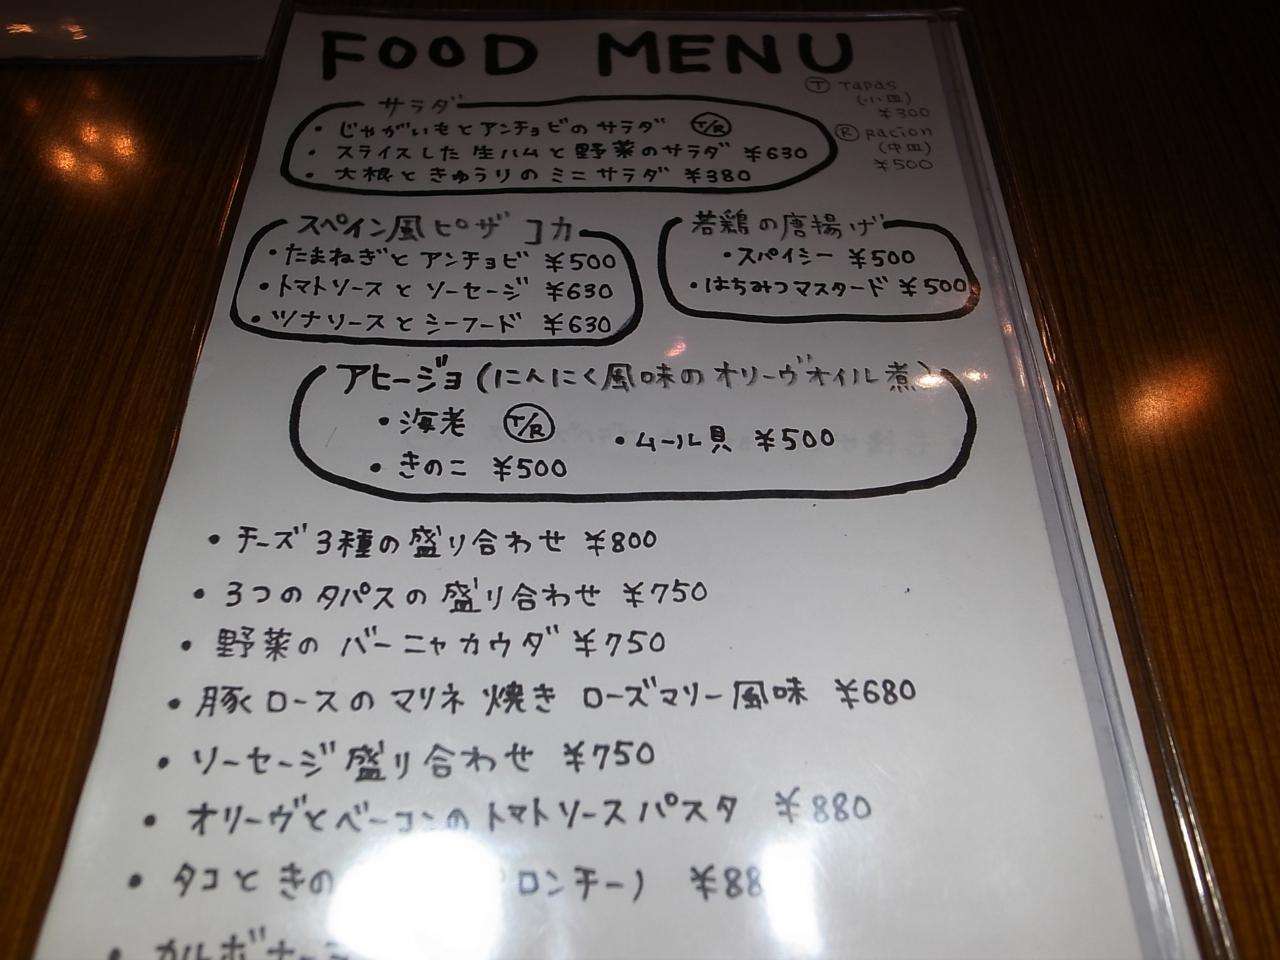 FOOD MENU
Ⓣ Tapas
(小皿)
¥300
Ⓡ Racion
(中皿)
¥500
サラダ
・じゃがいもとアンチョビのサラダ T/R
・スライスした生ハムと野菜のサラダ ¥630
・大根ときゅうりのミニサラダ ¥380
スペイン風ピザ コカ
・たまねぎとアンチョビ ¥500
・トマトソースとソーセージ ¥630
・ツナソースとシーフード ¥630
若鶏の唐揚げ
・スパイシー ¥500
・はちみつマスタード ¥500
アヒージョ(にんにく風味のオリーヴオイル煮)
・海老 T/R
・きのこ ¥500
・ムール貝 ¥500
・チーズ3種の盛り合わせ ¥800
・3つのタパスの盛り合わせ ¥750
・野菜のバーニャカウダ ¥750
・豚ロースのマリネ焼き ローズマリー風味 ¥680
・ソーセージ盛り合わせ ¥750
・オリーヴとベーコンのトマトソースパスタ ¥880
・タコときの ロンチーノ) ¥88
・カルボナー